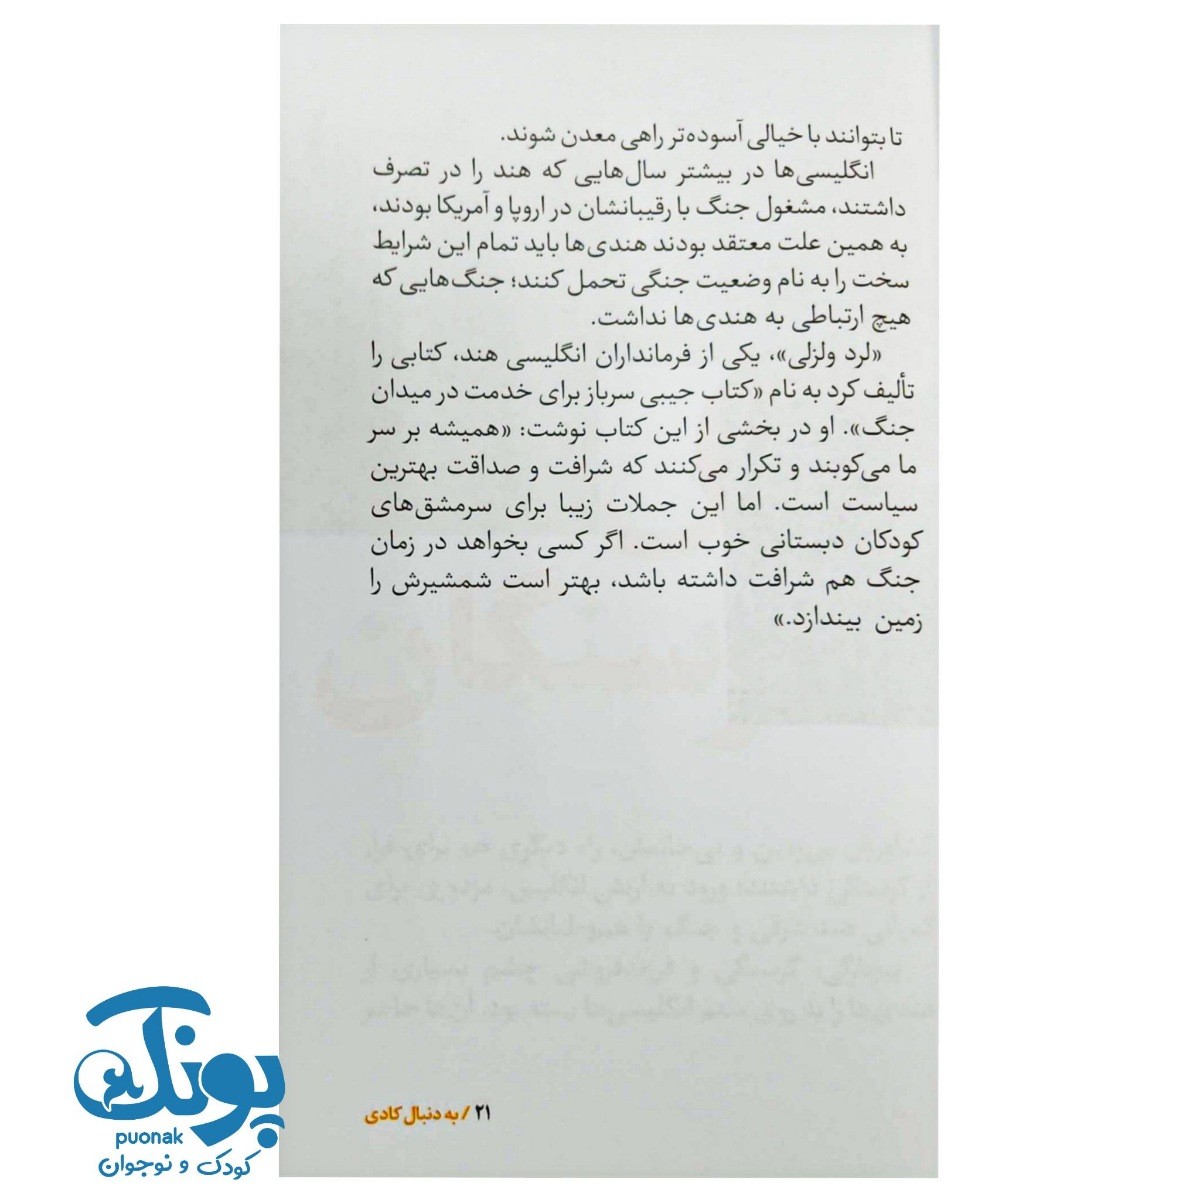 تا بتوانند با خیالی آسوده‌تر راهی معدن شوند.
انگلیسی‌ها در بیشتر سال‌هایی که هند را در تصرف
داشتند، مشغول جنگ با رقیبانشان در اروپا و آمریکا بودند،
به همین علت معتقد بودند هندی‌ها باید تمام این شرایط
سخت را به نام وضعیت جنگی تحمل کنند؛ جنگ‌هایی که
هیچ ارتباطی به هندی‌ها نداشت.
«لرد ولزلی»، یکی از فرمانداران انگلیسی هند، کتابی را
تألیف کرد به نام «کتاب جیبی سرباز برای خدمت در میدان
جنگ». او در بخشی از این کتاب نوشت: «همیشه بر سر
ما می‌کوبند و تکرار می‌کنند که شرافت و صداقت بهترین
سیاست است. اما این جملات زیبا برای سرمشق‌های
کودکان دبستانی خوب است. اگر کسی بخواهد در زمان
جنگ هم شرافت داشته باشد، بهتر است شمشیرش را
زمین بیندازد.»
۲۱ / به دنبال کادی
پونک
puonak
کودک و نوجوان